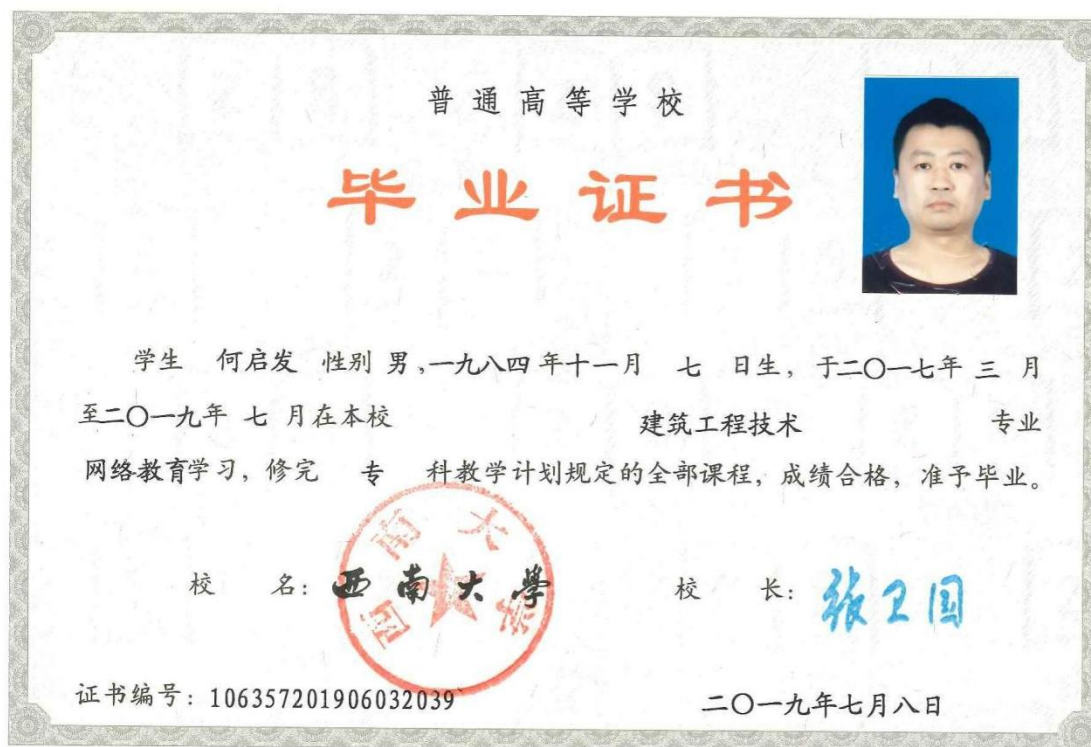 普通高等学校
毕业证书
学生 何启发 性别 男,一九八四年十一月 七 日生，于二〇一七年 三 月
至二〇一九年 七 月在本校 建筑工程技术 专业
网络教育学习，修完 专 科教学计划规定的全部课程，成绩合格，准予毕业。
校 名：西南大學 校 长：张卫国
西南大学
证书编号：106357201906032039 二〇一九年七月八日